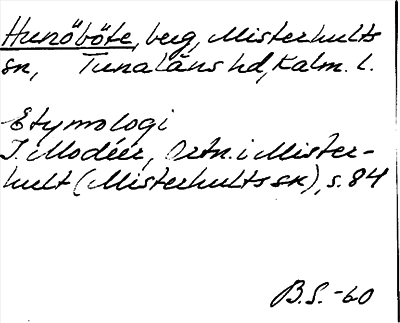 Hunöböte, berg, Misterhults
sn, Tunaläns hd, Kalm. l.
Etymologi
I. Modéer, Ortn. i Mister-
hult (Misterhults sn), s. 84
B.S. -60